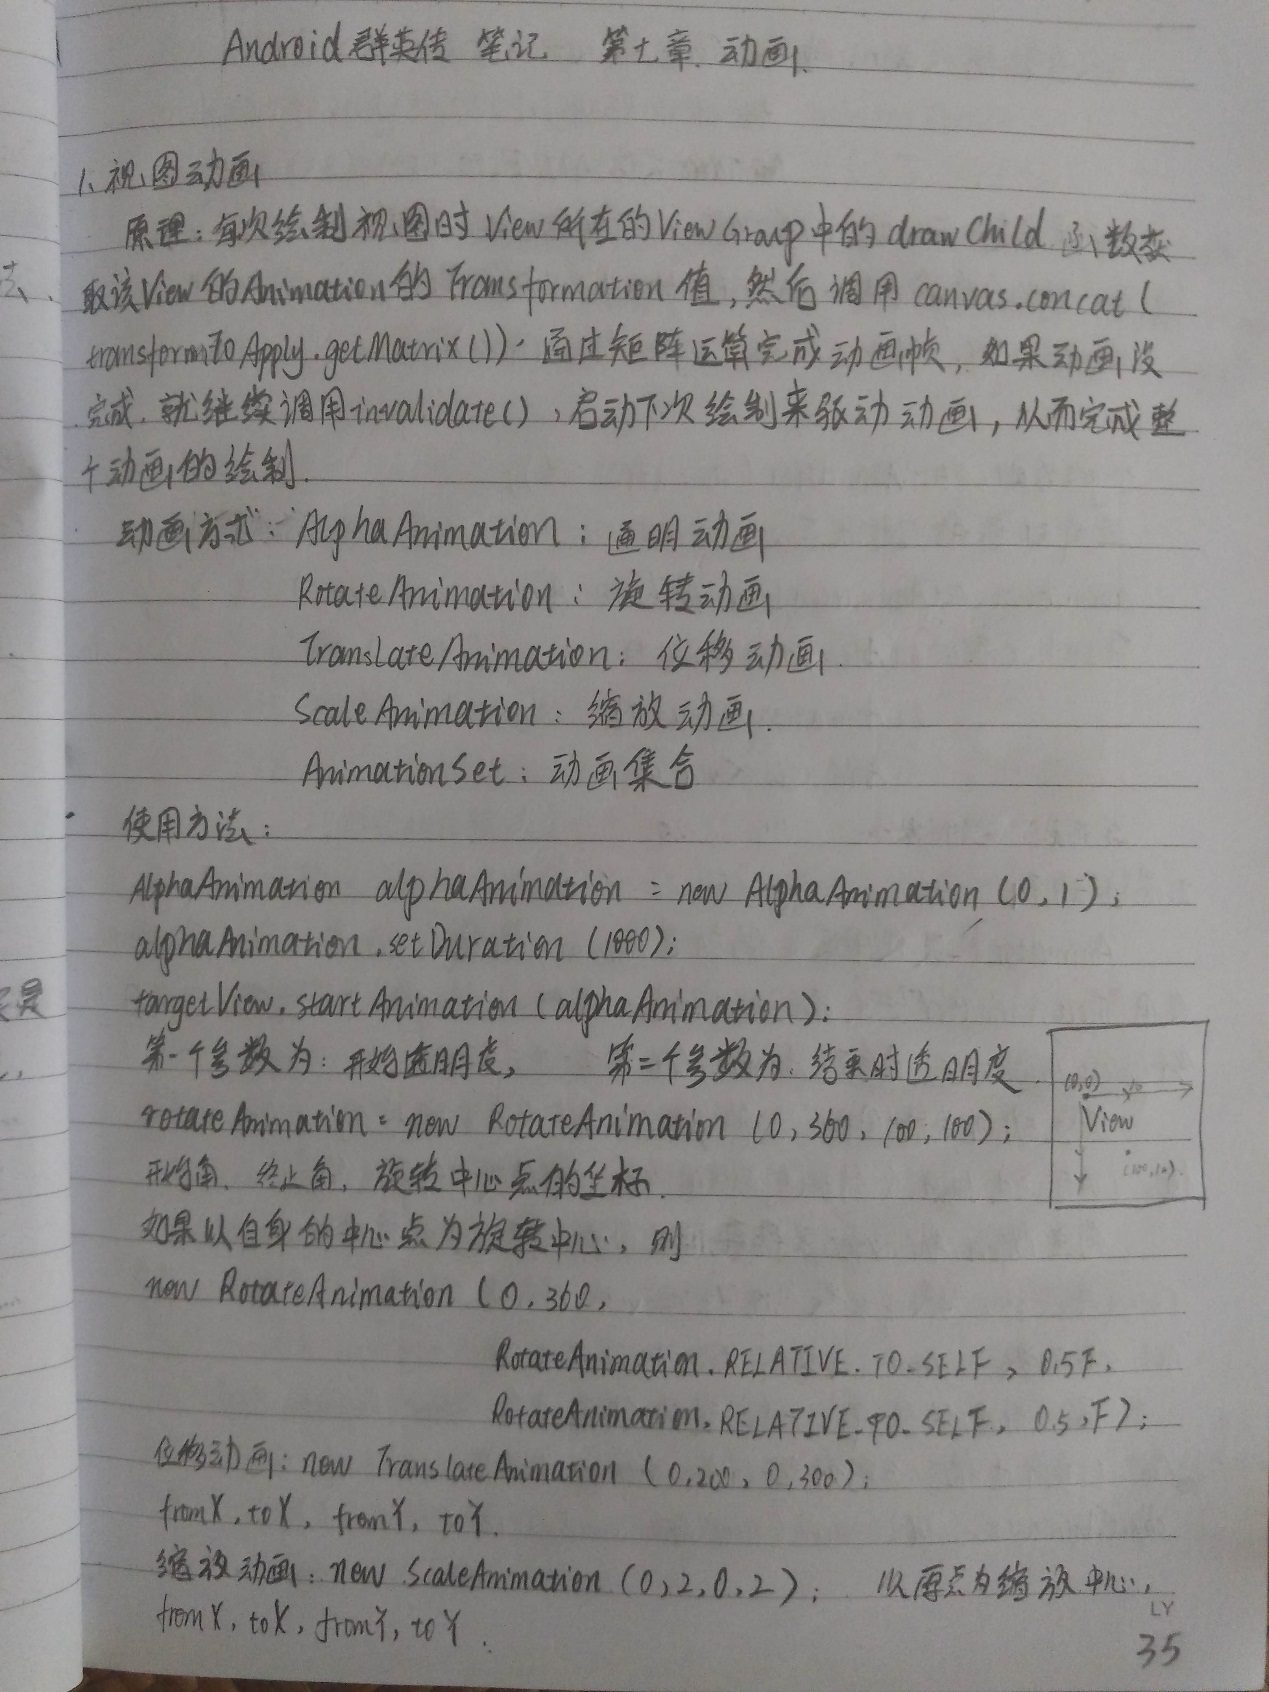 Android群英传 笔记 第七章. 动画.
1、视图动画
原理：每次绘制视图时View所在的ViewGroup中的drawChild函数获
取该View的Animation的Transformation值，然后调用canvas.concat(
transformToApply.getMatrix()). 通过矩阵运算完成动画帧，如果动画没
完成. 就继续调用invalidate()，启动下次绘制来驱动动画，从而完成整
个动画的绘制.
动画方式：AlphaAnimation：透明动画
RotateAnimation：旋转动画
TranslateAnimation：位移动画.
ScaleAnimation：缩放动画.
AnimationSet：动画集合
使用方法：
AlphaAnimation alphaAnimation = new AlphaAnimation (0, 1);
alphaAnimation.setDuration (1000);
targetView.startAnimation (alphaAnimation);
第一个参数为：开始透明度， 第二个参数为. 结束时透明度
rotateAnimation = new RotateAnimation (0, 360, 100, 100);
(0,0)
View
开始角、终止角，旋转中心点的坐标.
如果以自身的中心点为旋转中心，则
new RotateAnimation (0, 360,
RotateAnimation.RELATIVE_TO_SELF, 0.5F,
RotateAnimation.RELATIVE_TO_SELF, 0.5,F);
位移动画：new TranslateAnimation (0,200, 0,300);
fromX, toX, fromY, toY.
缩放动画：new ScaleAnimation (0,2,0,2); 以原点为缩放中心，
fromX, toX, fromY, toY.
LY
35